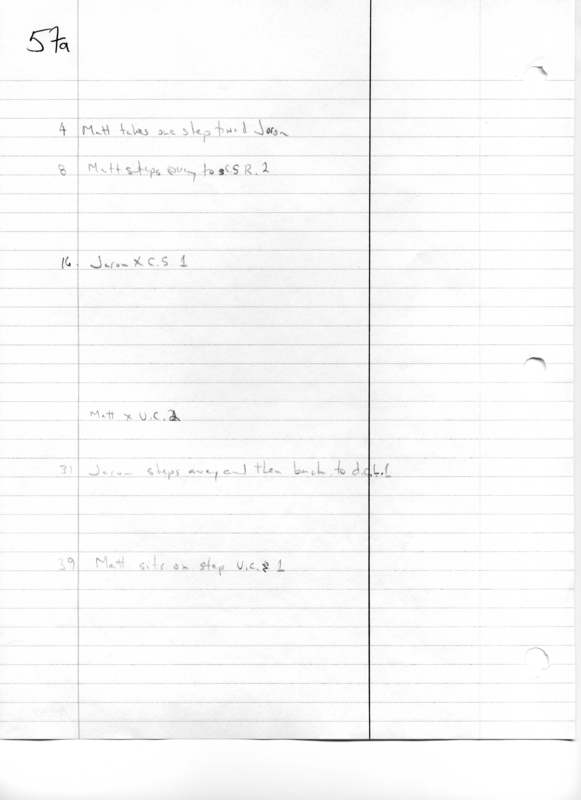 57a
4 Matt takes one step toward Jaron
8 Matt steps away to CSR. 2
16. Jaron X C.S 1
Matt x U.C. 2
31 Jaron steps away and then back to d.c.L.1
39 Matt sits on step U.C. 1